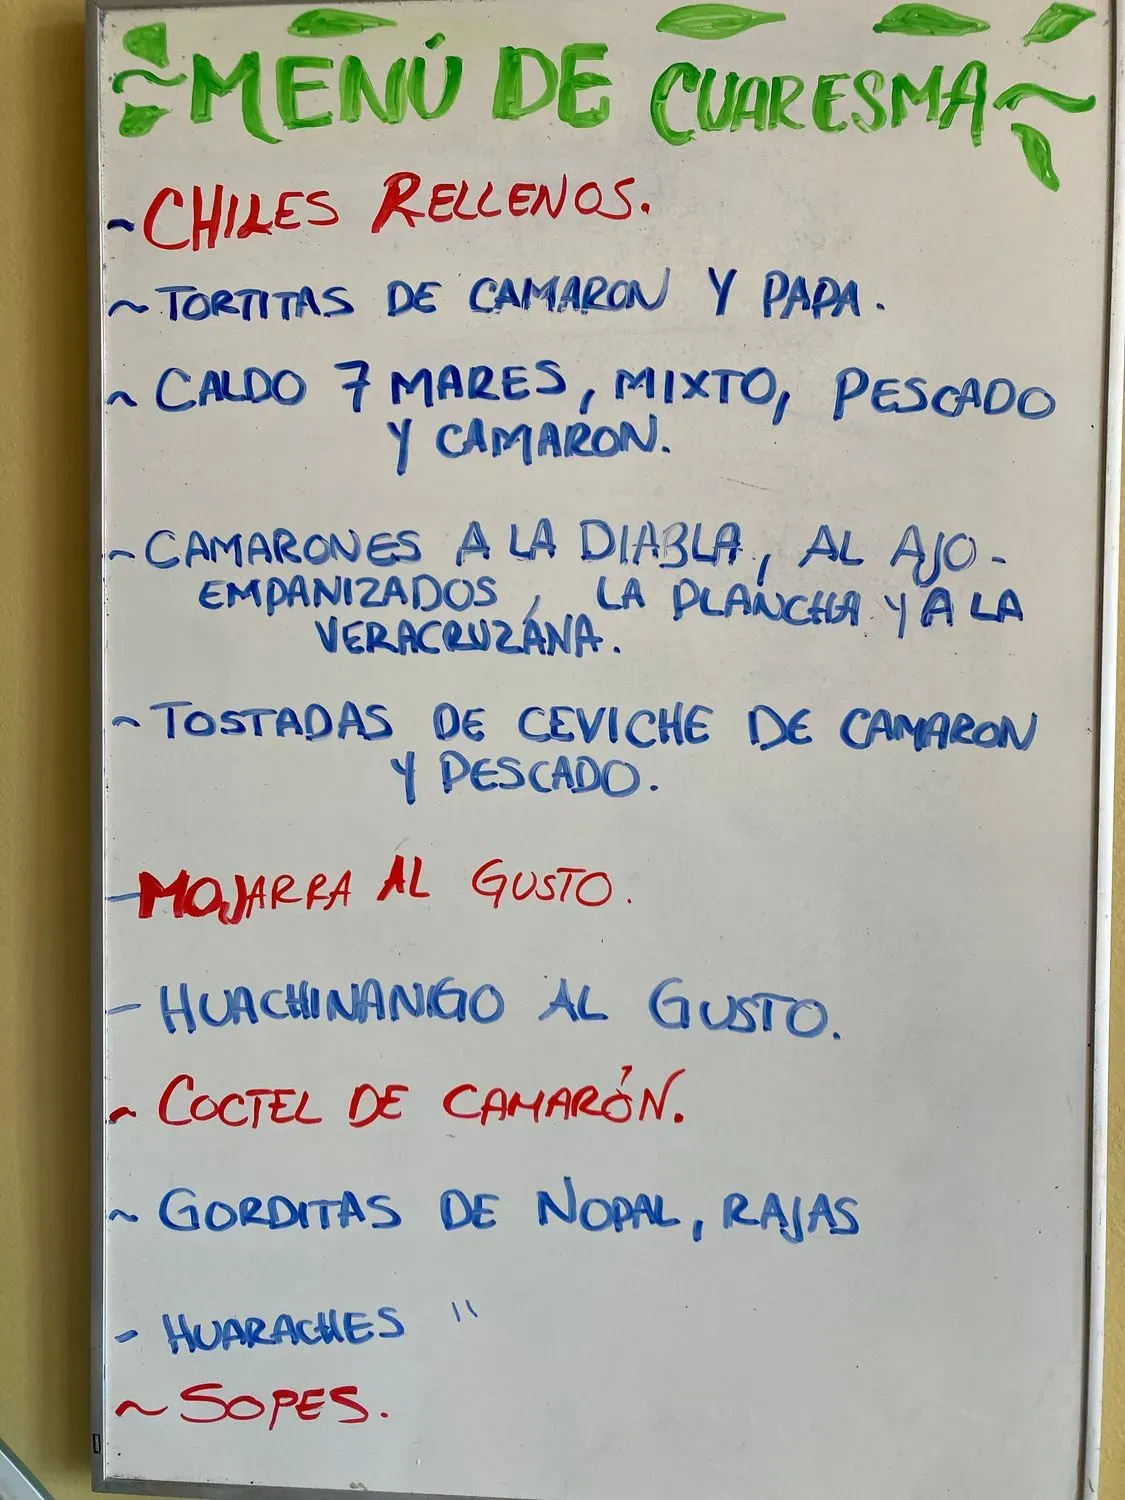 MENÚ DE CUARESMA
~ CHILES RELLENOS.
~ TORTITAS DE CAMARON Y PAPA.
~ CALDO 7 MARES, MIXTO, PESCADO
Y CAMARON.
~ CAMARONES A LA DIABLA, AL AJO-
EMPANIZADOS, LA PLANCHA Y A LA
VERACRUZANA.
~ TOSTADAS DE CEVICHE DE CAMARON
Y PESCADO.
- MOJARRA AL GUSTO.
- HUACHINANGO AL GUSTO.
~ COCTEL DE CAMARÓN.
~ GORDITAS DE NOPAL, RAJAS
- HUARACHES "
~ SOPES.